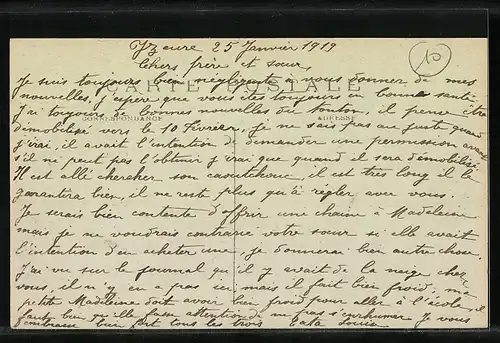 Yzeure 25 Janvier 1919
Chers frère et sœur,
Je suis toujours bien négligente à vous donner de mes
CARTE POSTALE
nouvelles, j'espère que vous êtes toujours en bonne santé.
J'ai toujours de bonnes nouvelles du tonton, il pense être
CORRESPONDANCE
ADRESSE
démobilisé vers le 10 Février, je ne sais pas au juste quand
j'irai, il avait l'intention de demander une permission avant
s'il ne peut pas l'obtenir j'irai que quand il sera démobilisé
Il est allé chercher son caoutchouc, il est très long il le
garantira bien, il ne reste plus qu'à régler avec vous.
Je serais bien contente d'offrir une chaîne à Madeleine
mais je ne voudrais contrarié votre sœur si elle avait
l'intention d'en acheter une je donnerai bien autre chose.
J'ai vu sur le journal qu'il y avait de la neige chez
vous, il n'y en a pas ici mais il fait bien froid, ma
petite Madeleine doit avoir bien froid pour aller à l'école, il
faut bien qu'elle fasse attention de ne pas s'enrhumer. Je vous
embrasse bien fort tous les trois Tata Louise
10